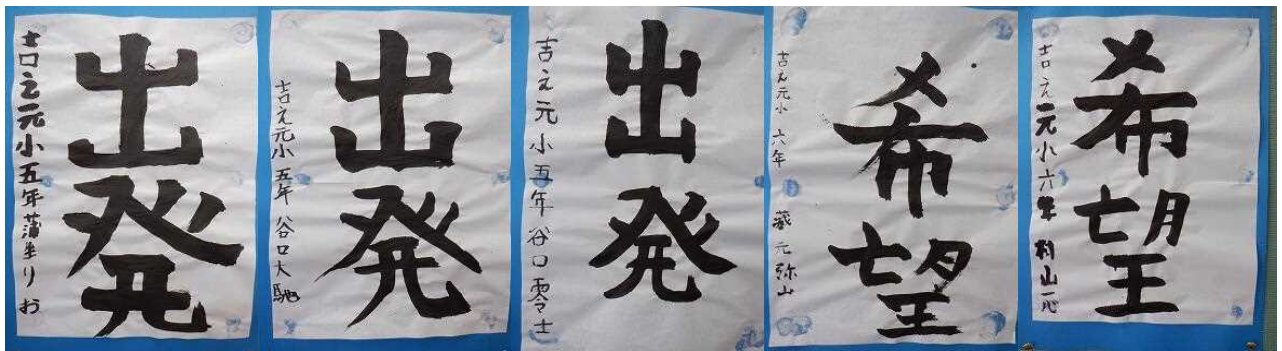 出発
吉之元小五年蒲生りお
出発
吉之元小 五年 谷口大馳
出発
吉之元小五年谷口零士
希望
吉之元小 六年 蔵元弥山
希望
吉之元小六年 村山一心